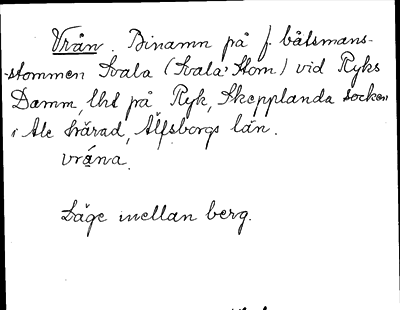 Vrån. Binamn på f. båtsmans-
stommen Svala (Svala' Stom) vid Ryks
Damm, lht på Ryk, Skepplanda socken
i Ale härad, Älfsborgs län.
vråna.
Läge mellan berg.